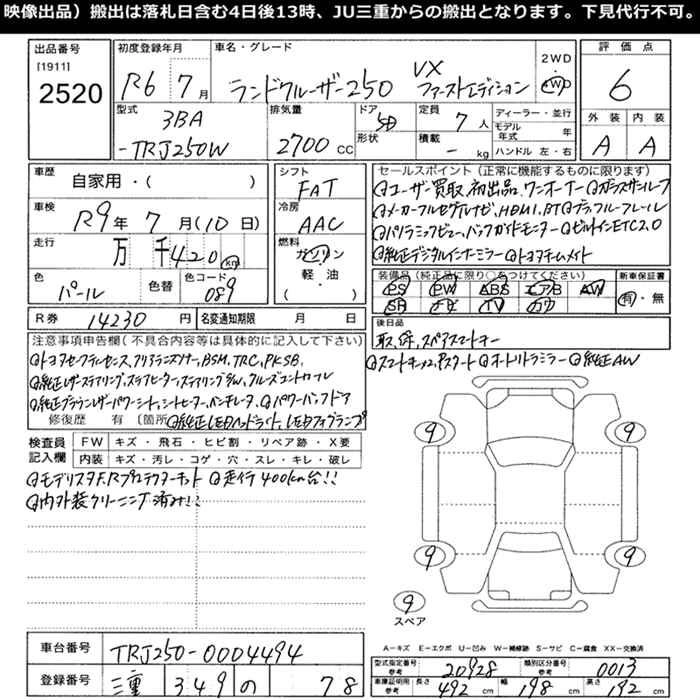 映像出品）搬出は落札日含む4日後13時、JU三重からの搬出となります。下見代行不可。
出品番号 [1911] 2520
初度登録年月 R6 年 7月
車名・グレード ランドクルーザー250 VX ファーストエディション
2WD 4WD
評価点 6
外装 A 内装 A
型式 3BA -TRJ250W
排気量 2700 CC
ドア 5D 形状
定員 7人
積載 - kg
ディーラー・並行
モデル年式 年
ハンドル 左・右
車歴 自家用・( )
シフト FAT
車検 R9年 7月(10日)
冷房 AAC
走行 万 千420 km
燃料 ガソリン 軽・油 ( )
色 パール 色替 色コード 089
R券 14230円 名変通知期限 月 日
セールスポイント（正常に機能するものに限ります）
@ユーザー買取、初出品、ワンオーナー @ガラスサンルーフ
@メーカーフルセグデルナビ、HDMI、BT @ブラックルーフレール
@パノラミックビュー、バックガイドモニター @ビルトインETC2.0
@純正デジタルインナーミラー @トヨタチームメイト
装備品（純正品に限り○をつけてください）
PS PW ABS エアB AW
SR ナビ TV カワ
新車保証書 有・無
後日品
取、保、スペアスマートキー
@スマートキー×2、Pスタート @オートリトラミラー @純正AW
注意事項申告欄(不具合内容等は具体的に記入して下さい)
@トヨタセーフティセンス、クリアランスソナー、BSM、TRC、PKSB、
@純正レザーステアリング、ステアヒーター、ステアリングリモコン、クルーズコントロール
@純正ブラウンレザーパワーシート、シートヒーター、ベンチレータ、@パワーバックドア
修復歴 有 〔箇所 @純正LEDヘッドライト、LEDフォグランプ
検査員記入欄
FW キズ・飛石・ヒビ割・リペア跡・X要
内装 キズ・汚レ・コゲ・穴・スレ・キレ・破レ
@モデリスタF、Rプロテクターキット @走行400km台!!
@内外装クリーニング済み!!
9 9
9 9
9
スペア
A=キズ E=エクボ U=凹み W=補修跡 S=サビ C=腐食 XX=交換済
車台番号 TRJ250-0004494
登録番号 三重 349 の 78
型式指定番号 参考 20928 類別区分番号 参考 0013
車庫証明用 参考 長さ 492 cm 幅 198 cm 高さ 192 cm